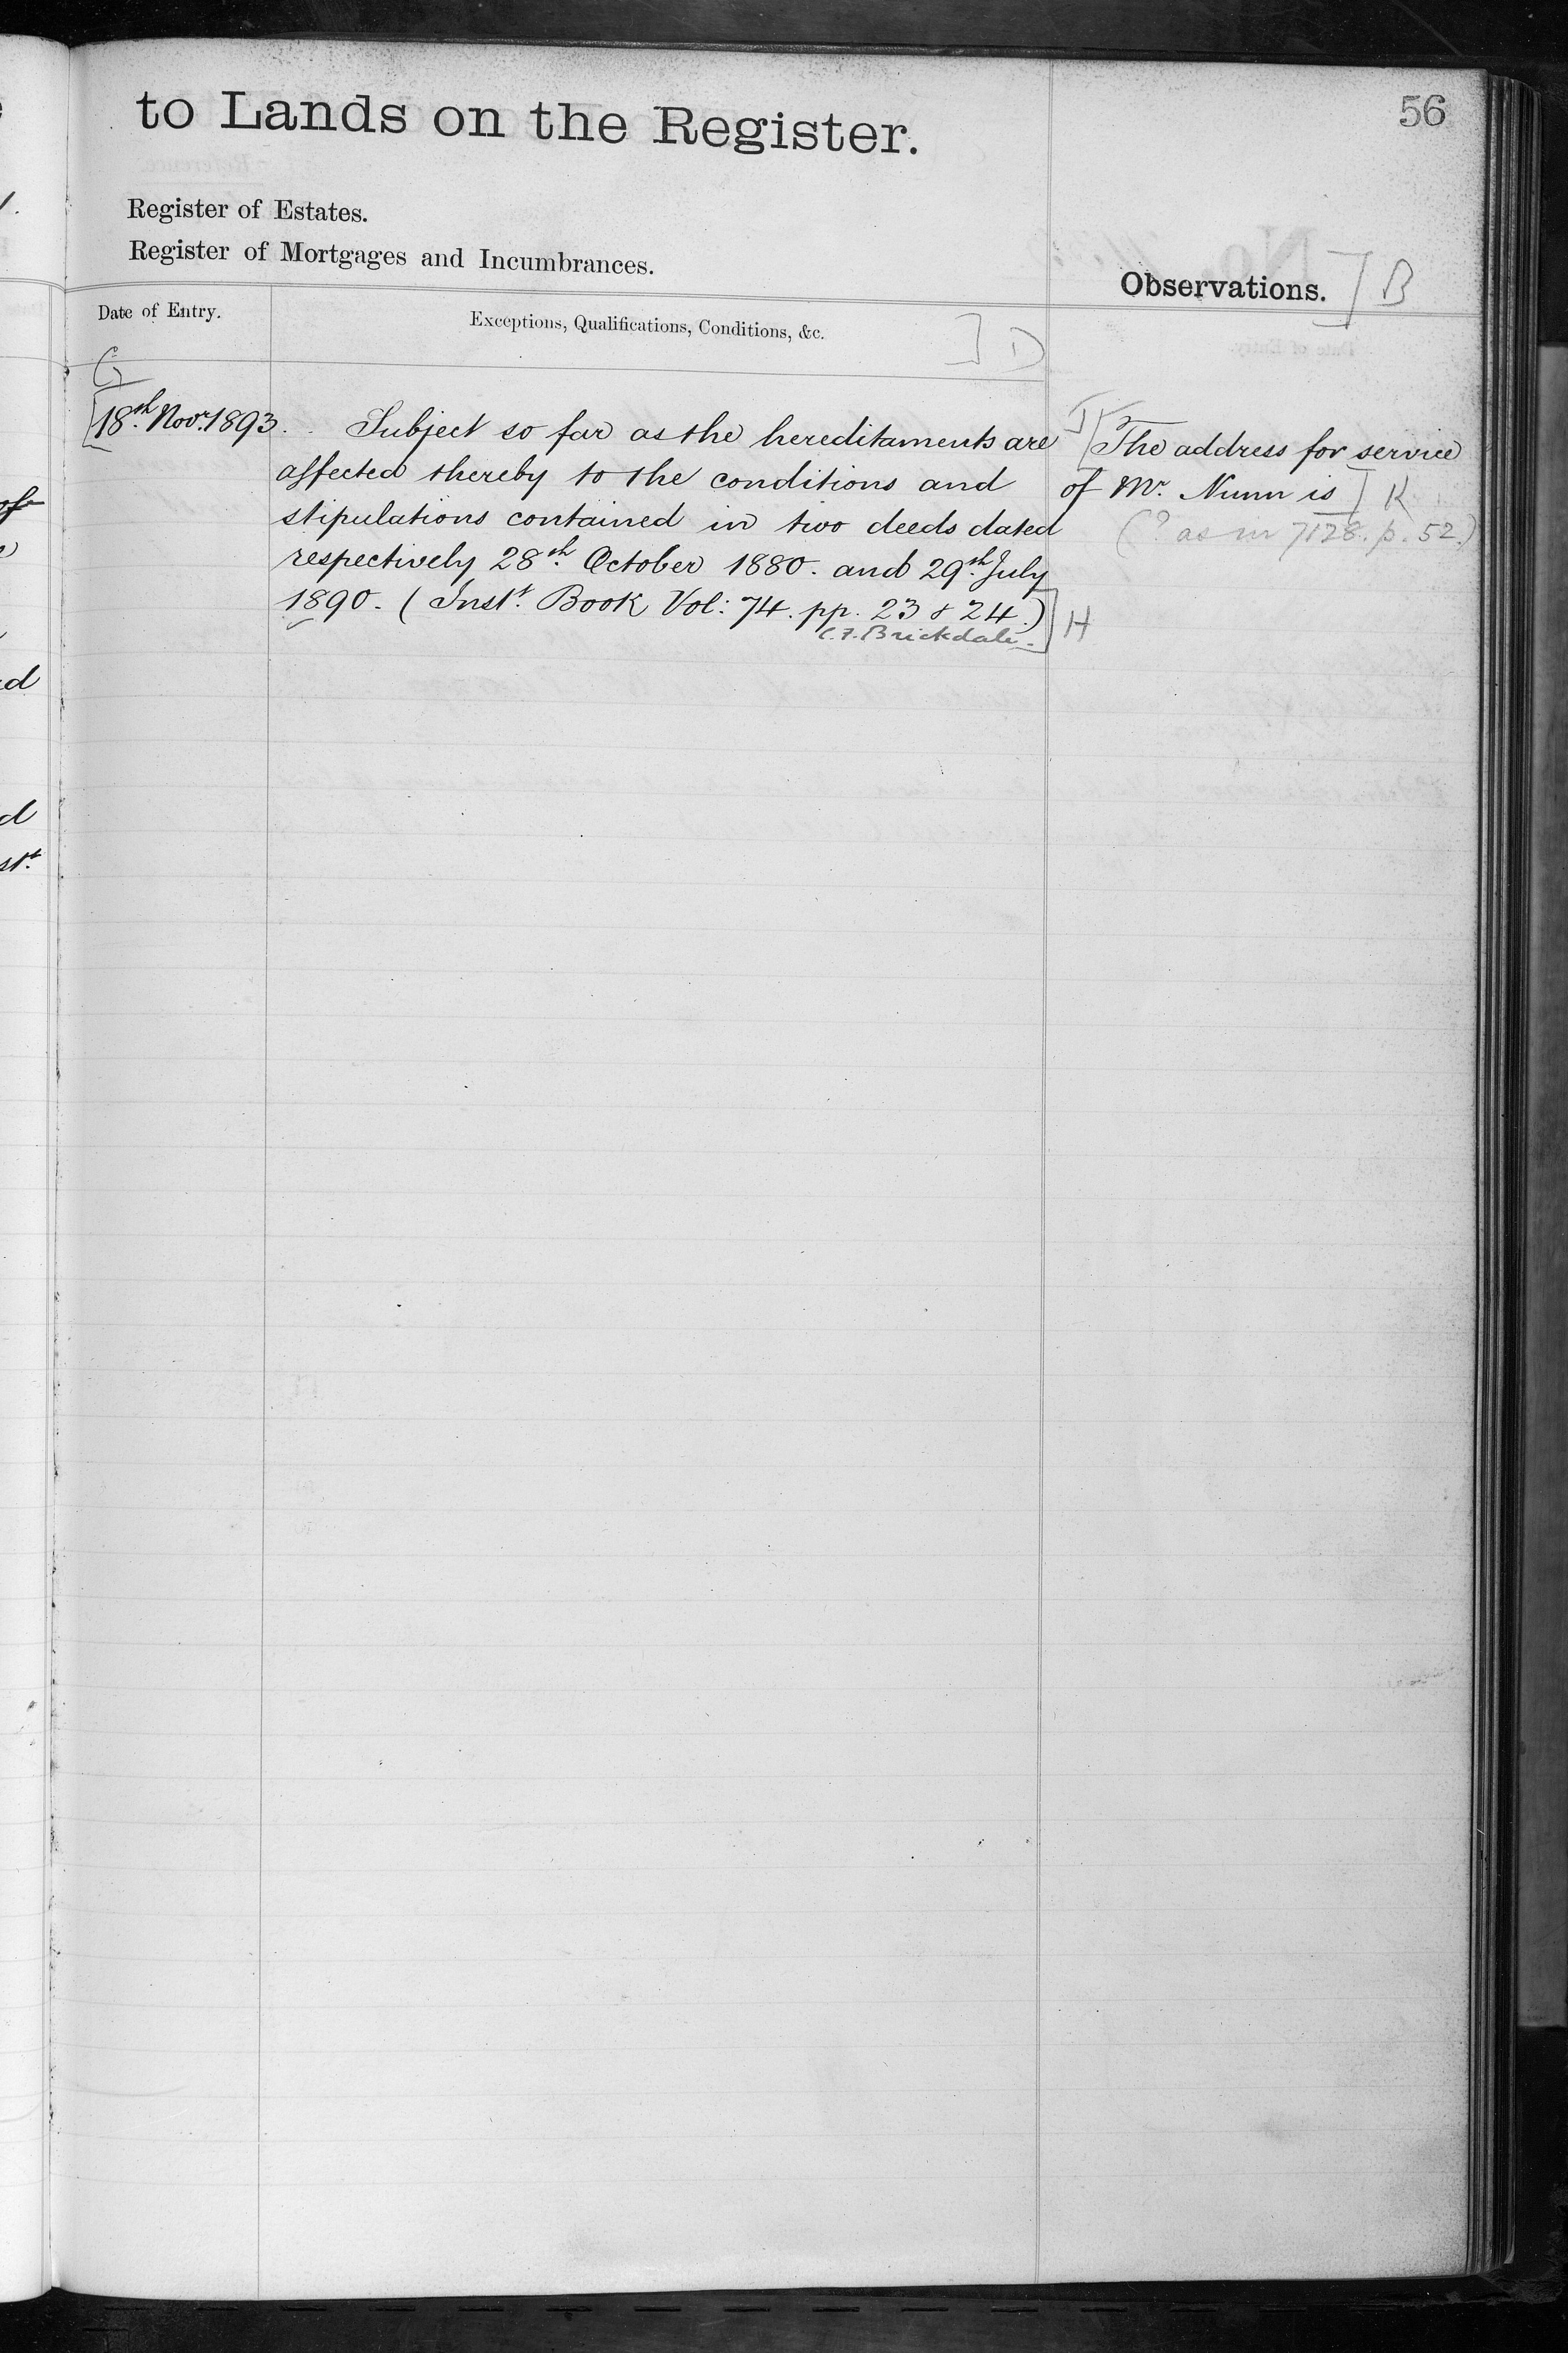 to Lands on the Register.
56
Register of Estates.
Register of Mortgages and Incumbrances.
Observations. ] B
Date of Entry.
Exceptions, Qualifications, Conditions, &c. ] D
G
[18th. Novr. 1893.
Subject so far as the hereditaments are
affected thereby to the conditions and
stipulations contained in two deeds dated
respectively 28th. October 1880. and 29th. July
1890. (Inst. Book Vol: 74. pp. 23 & 24.)
C.F. Brickdale. ] H
J [The address for service
of Mr. Nunn is ] K
(? as in 7128. p. 52.)
of
ed
d
st.